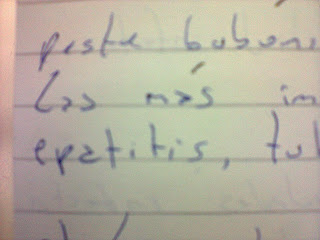 peste bubón
Las más im
epatitis, tu